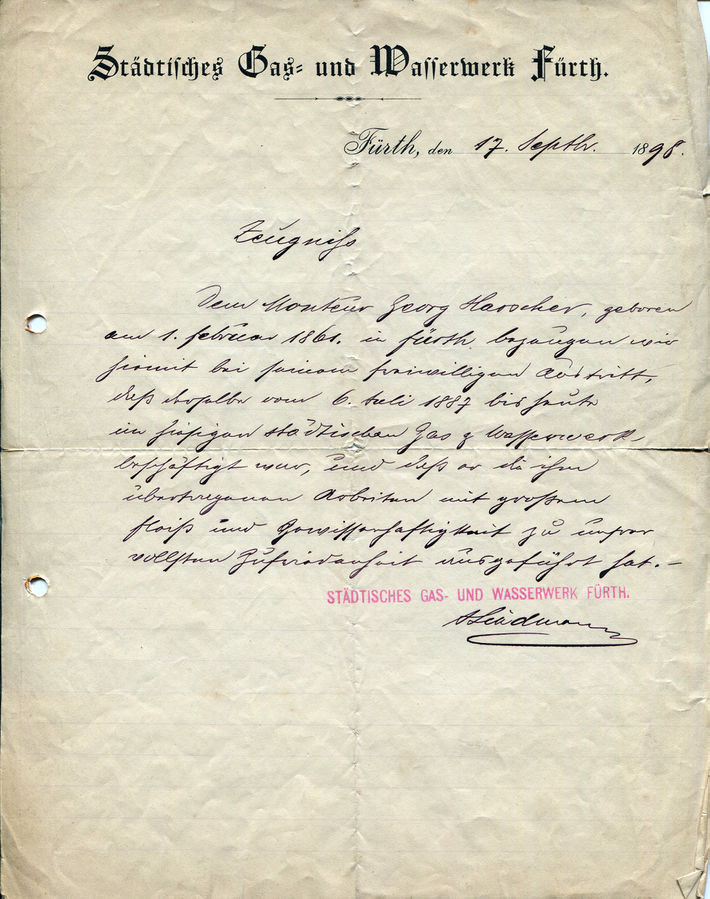 Städtisches Gas- und Wasserwerk Fürth.
Fürth, den 17. Septbr. 1898.
Zeugniss
Dem Monteur Georg Harscher, geboren
am 1. Februar 1861. in Fürth, bezeugen wir
hiemit bei seinem freiwilligen Austritt,
daß derselbe vom 6. Juli 1887 bis heute
im hiesigen städtischen Gas & Wasserwerk
beschäftigt war, und daß er die ihm
übertragenen Arbeiten mit großem
Fleiß und Gewissenhaftigkeit zu unsrer
vollsten Zufriedenheit ausgeführt hat. –
STÄDTISCHES GAS- UND WASSERWERK FÜRTH.